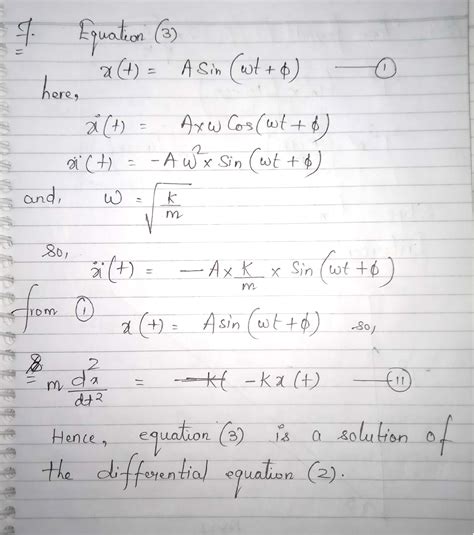 7. Equation (3)
x(t) = A Sin (ωt + ϕ) — (1)
here,
ẋ(t) = A×ω Cos(ωt + ϕ)
ẍ(t) = -A ω² × Sin (ωt + ϕ)
and, ω = √(k/m)
so,
ẍ(t) = -A × k/m × Sin (ωt + ϕ)
from (1)
x(t) = A sin (ωt + ϕ) so,
m d²x/dt² = -Kx(t) — (11)
Hence, equation (3) is a solution of
the differential equation (2).